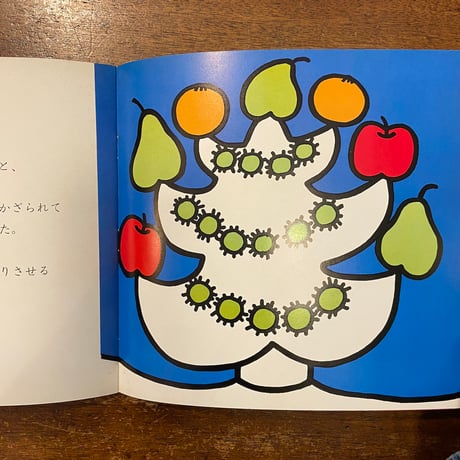 と、
かざられて
た。
りさせる